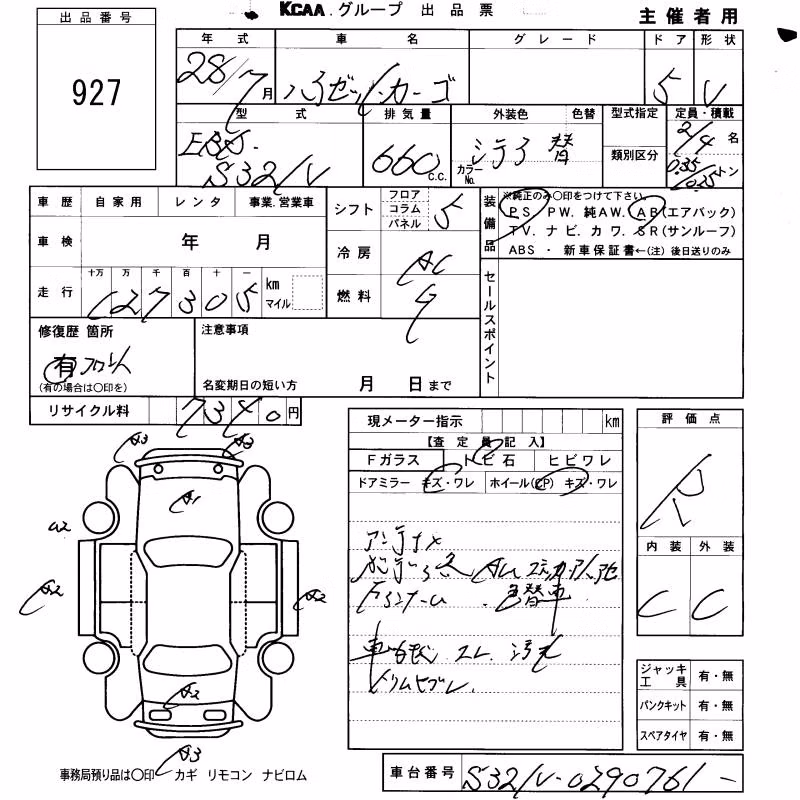 KCAA.グループ 出品票
主催者用
出品番号
927
年式 車名 グレード ドア 形状
28/7月 ハイゼット・カーゴ 5 V
型式 排気量 外装色 色替 型式指定 定員・積載
EBD-S321V 660c.c. カラーNo. シライ 替 類別区分 2/4名
0.35/0.25トン
車歴 自家用 レンタ 事業.営業車
シフト フロア コラム パネル 5
装備品 ※純正のみ○印をつけて下さい
PS PW. 純AW. AB(エアバック)
TV. ナビ. カワ. SR(サンルーフ)
ABS ・ 新車保証書←(注)後日送りのみ
車検 年 月
冷房 AC
走行 十万 万 千 百 十 一
127305 km マイル
燃料 G
セールスポイント
修復歴 箇所
有 フロント
(有の場合は○印を)
注意事項
名変期日の短い方 月 日まで
リサイクル料 7340円
現メーター指示 km
【査定員記入】
Fガラス トビ石 ヒビワレ
ドアミラー キズ・ワレ ホイール(CP) キズ・ワレ
評価点
R
内装 外装
C C
アンテナ×
色替車
車台サビ スレ 汚れ
トリムヒズレ
A3 A3
A1
A2
A2 A2
A2
A3
ジャッキ工具 有・無
パンクキット 有・無
スペアタイヤ 有・無
事務局預り品は○印 カギ リモコン ナビロム
車台番号 S321V-0290761-